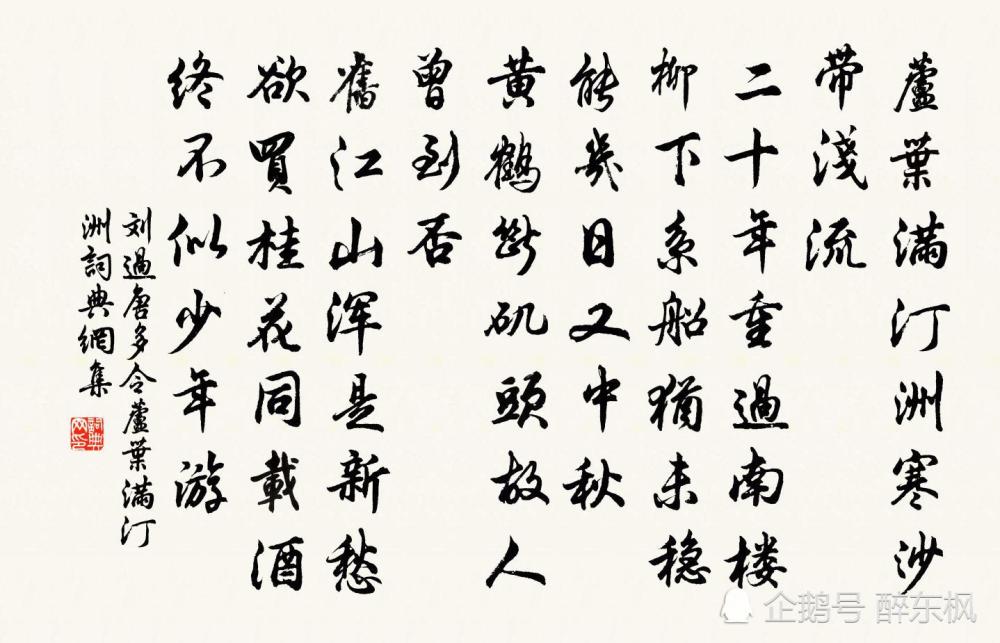 蘆葉滿汀洲寒沙
帶淺流
二十年重過南楼
柳下系船猶未穏
能幾日又中秋
黄鶴斷矶頭故人
曾到否
舊江山浑是新愁
欲買桂花同載酒
终不似少年游
刘過唐多令蘆葉滿汀
洲詞典網集
詞典网印
企鹅号 醉东枫